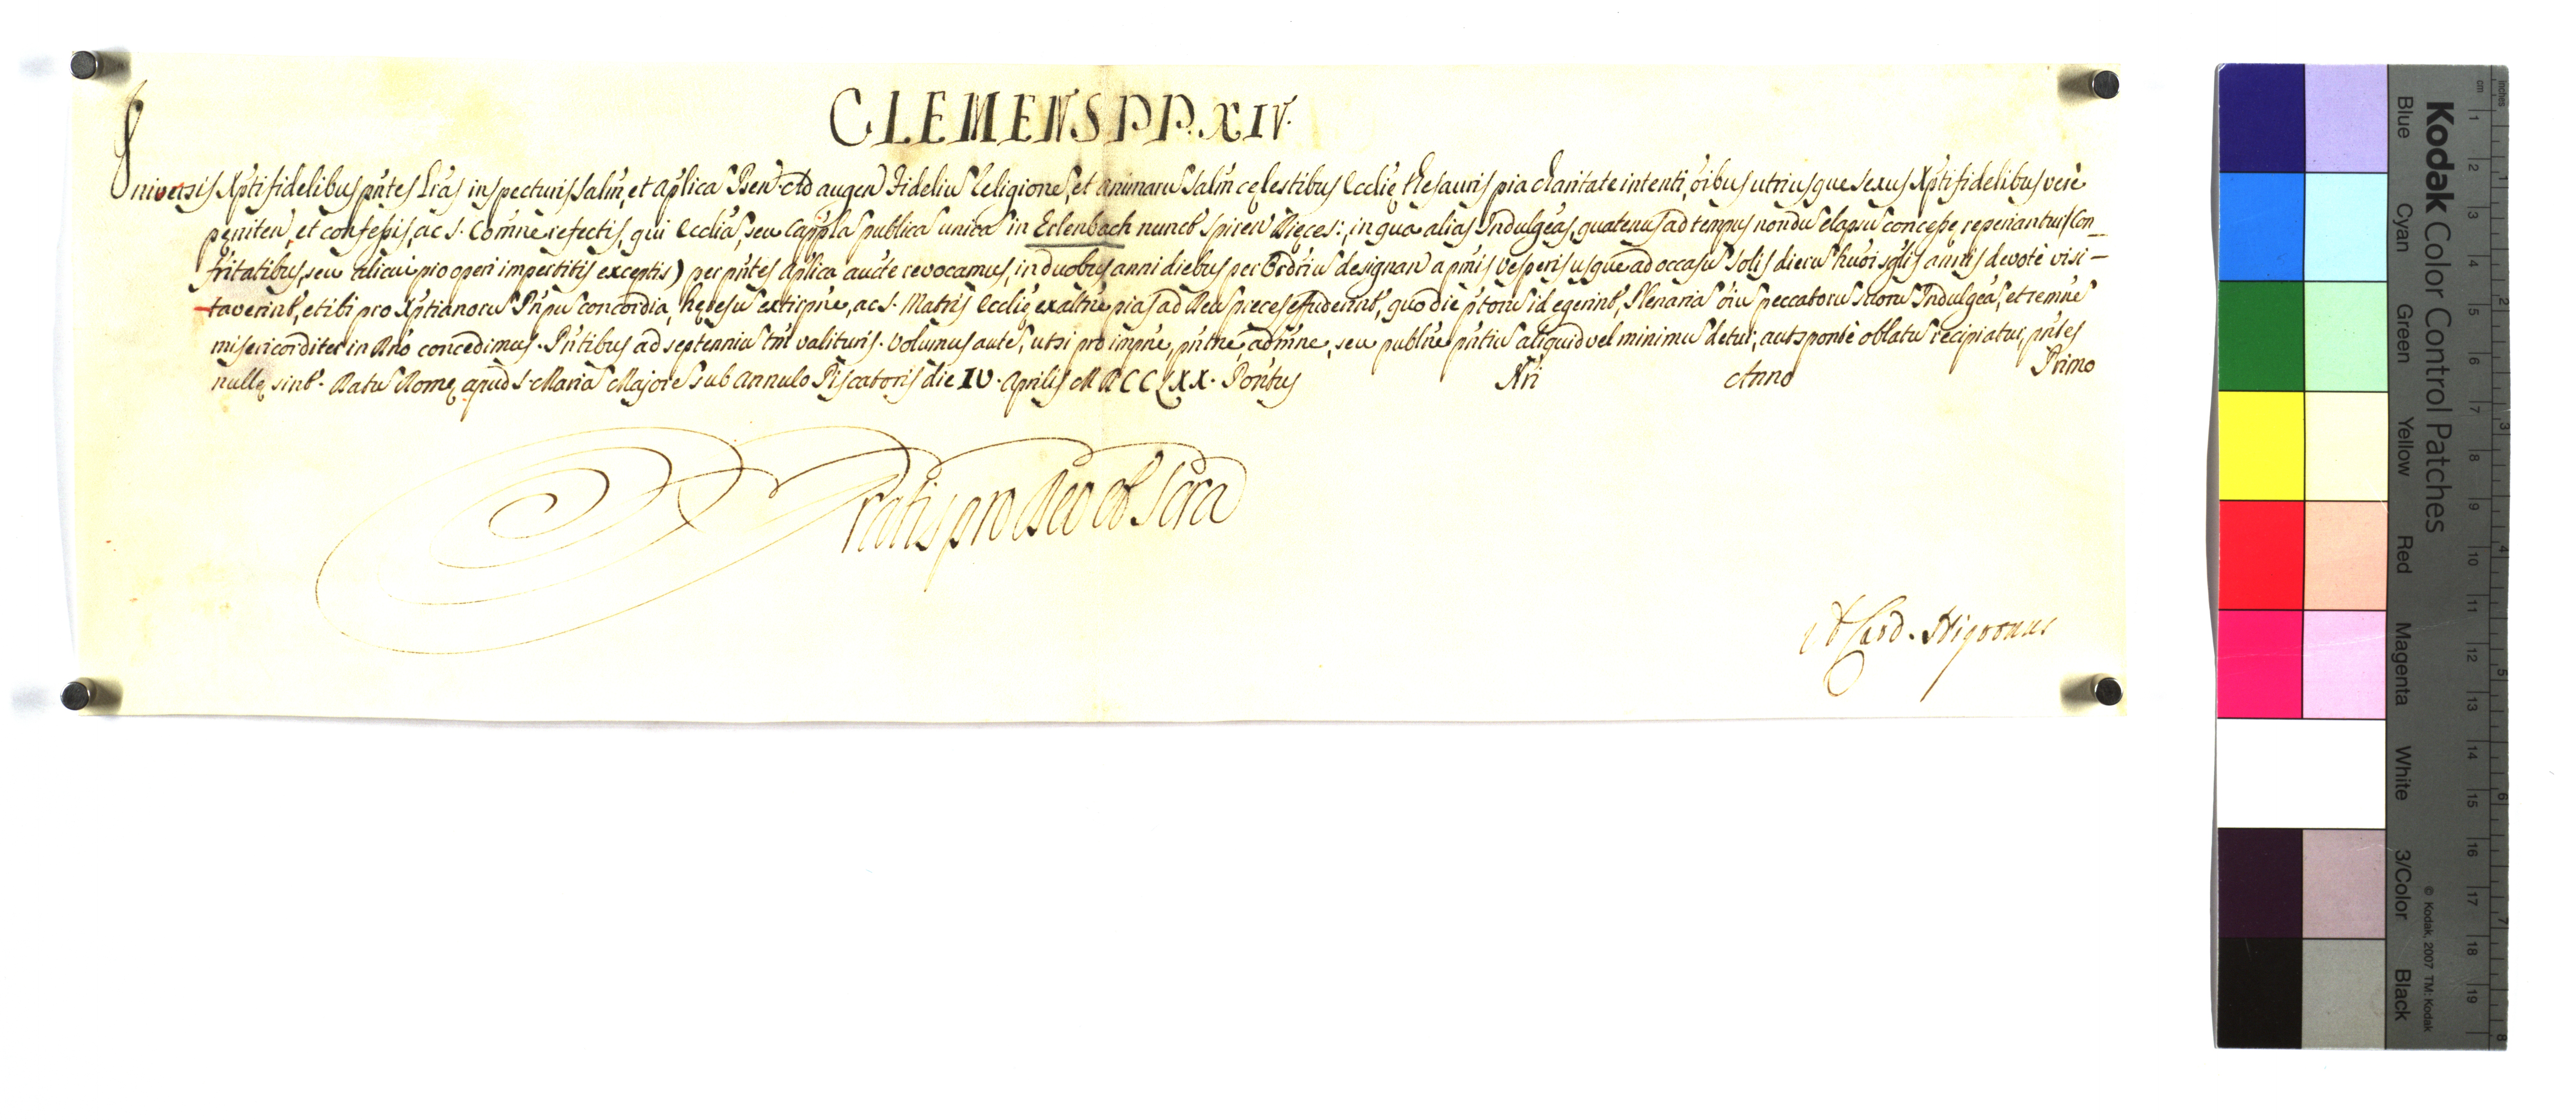 CLEMENS PP. XIV.
Universis Xpti fidelibus pntes Lras inspecturis Salm, et aplica Ben. Ad augen Fideliu Religione, et animaru Salm celestibus Ecclie thesauris pia charitate intenti, oibus utriusque sexus Xpti fidelibus vere
peniten, et confessis, ac S. Comne refectis, qui Ecclia, seu Cappla publica unica in Erlenbach nuncb Spiren Dieces:, in qua alias Indulgeas, quatenus ad tempus nondu elapsu concesse reperiantur (Con-
fritatibus, seu alicui pio operi impertitis exceptis) per pntes aplica aucte revocamus, in duobus anni diebus per Ordriu designan a pmis vesperis usque ad occasu Solis dieru huoi sglis annis devote visi-
taverint, et ibi pro Xptianoru Pnpu concordia, heresu extirpne, ac S. Matris Ecclie exaltne pias ad Deu preces effuderint, quo die ptoru id egerint, Plenaria oiu peccatoru suoru Indulgea, et remne
misericorditer in Dno concedimus. Pntibus ad septenniu tm valituris. Volumus aute, ut si pro impne, pntne, admne, seu publne pntiu aliquid vel minimu detur, aut sponte oblatu recipiatur, pntes
nulle sint. Datu Rome apud S. Maria Majore sub Annulo Piscatoris die IV. Aprilis MDCCLXX. Pontus Nri Anno Primo
Gratis pro Deo et Scra
Card. Nigronus
Kodak Color Control Patches
Blue Cyan Green Yellow Red Magenta White 3/Color Black
© Kodak, 2007 TM: Kodak
inches 1 2 3 4 5 6 7 8
cm 1 2 3 4 5 6 7 8 9 10 11 12 13 14 15 16 17 18 19